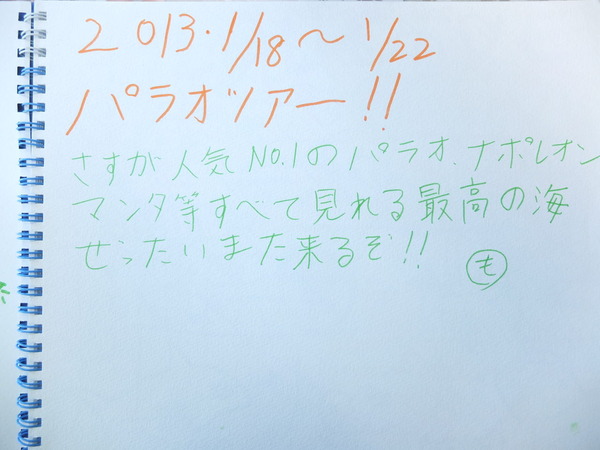 2013.1/18～1/22
パラオツアー!!
さすが人気No.1のパラオ、ナポレオン
マンタ等すべて見れる最高の海
ぜったいまた来るぞ!!
も